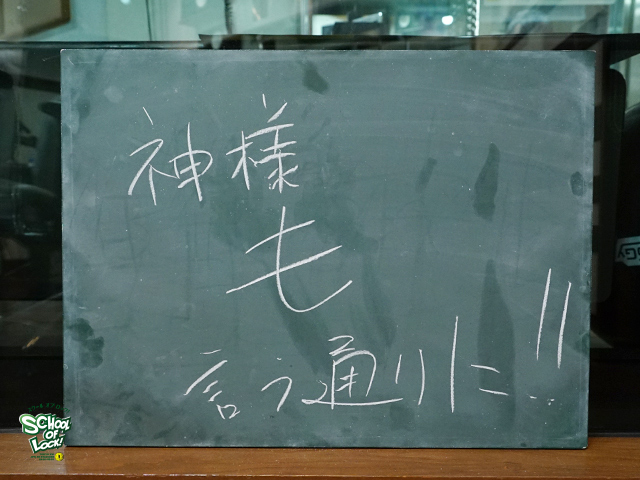 神様
も
言う通りに!!
SCHOOL
OF
LOCK!